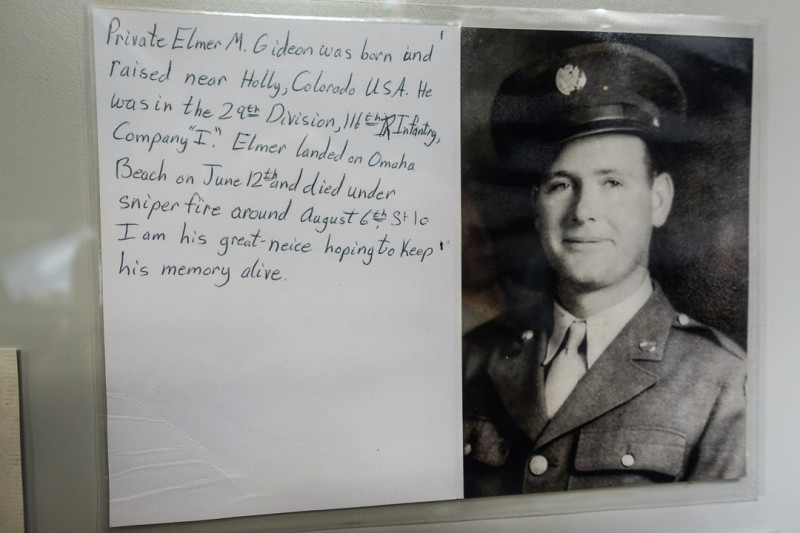 Private Elmer M. Gideon was born and
raised near Holly, Colorado USA. He
was in the 29th Division, 116th Infantry,
Company "I". Elmer landed on Omaha
Beach on June 12th and died under
sniper fire around August 6th St lo
I am his great-neice hoping to keep
his memory alive.